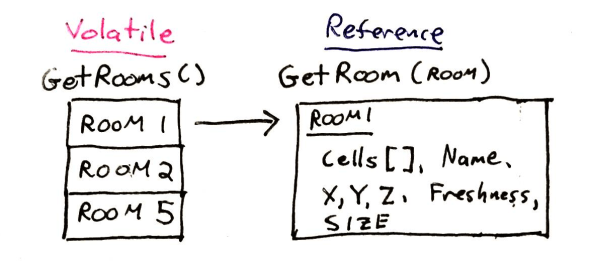 Volatile
GetRooms()
ROOM 1
ROOM 2
ROOM 5
Reference
GetRoom (ROOM)
ROOM1
Cells[], Name,
X,Y,Z, Freshness,
SIZE